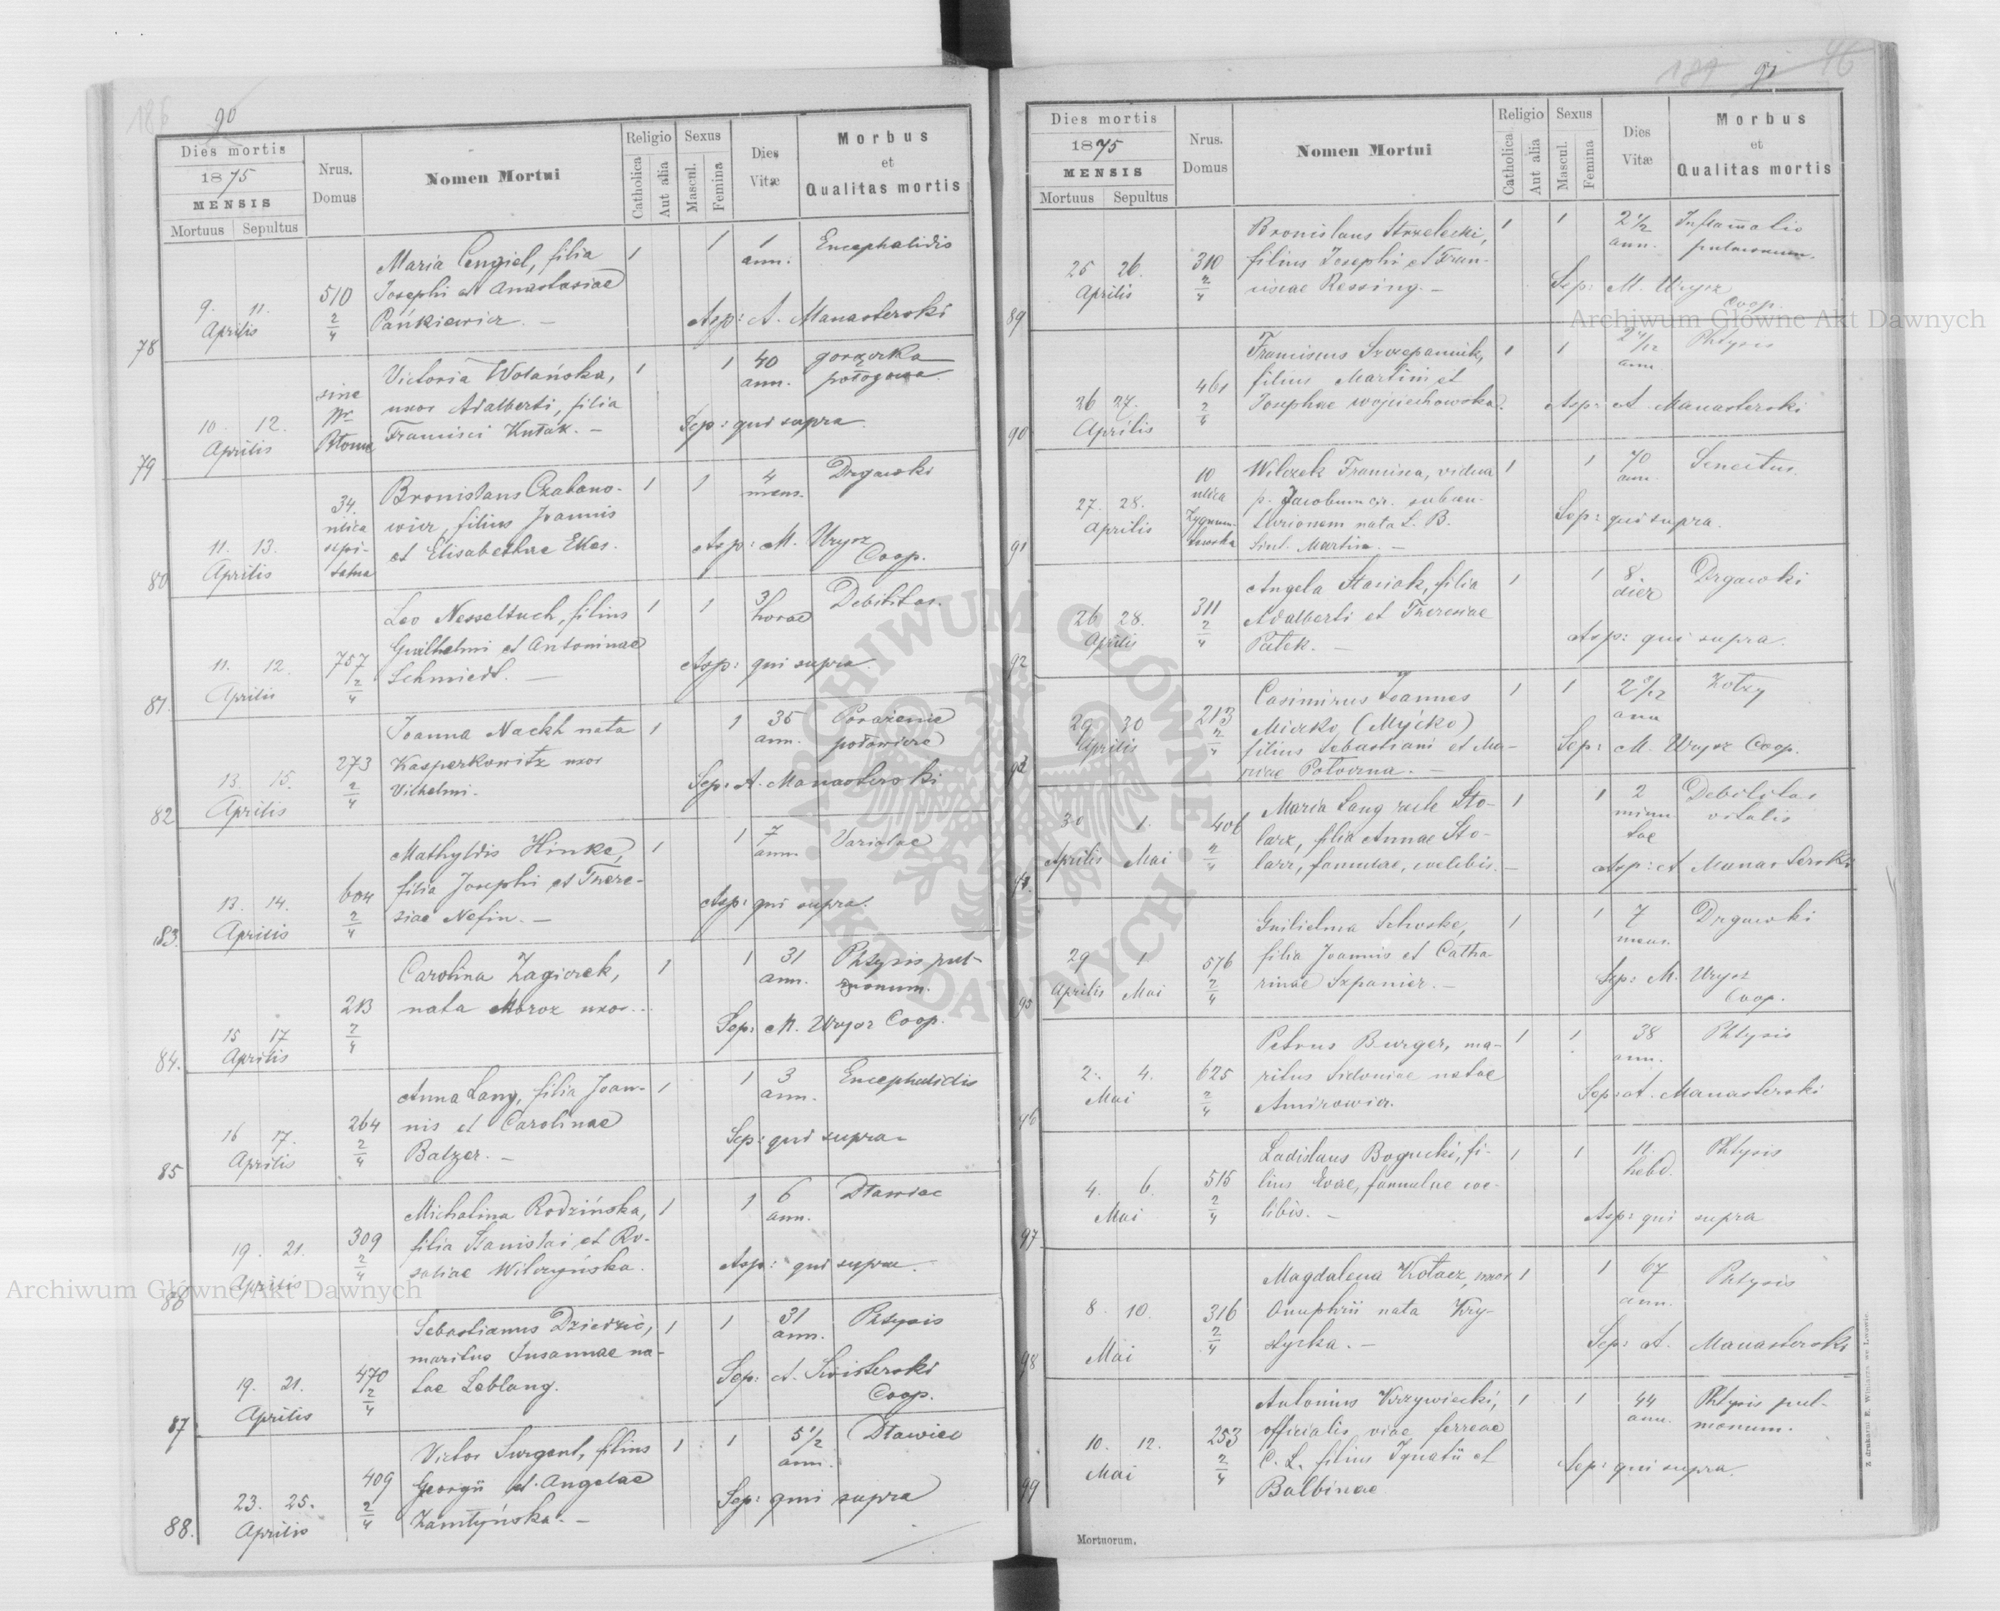 90
Dies mortis
1875
MENSIS
Mortuus Sepultus
Nrus. Domus
Nomen Mortui
Religio
Catholica
Aut alia
Sexus
Mascul.
Femina
Dies Vitæ
Morbus
et
Qualitas mortis
78
9. 11.
Aprilis
510 2/4
Maria Cengiel, filia
Josephi et Anastasiae
Pańkiewicz. —
1 1
1 ann.
Encephalidis
Asp: A. Manasterski
79
10. 12.
Aprilis
sine Nr.
Victoria Wolańska,
uxor Adalberti, filia
Francisci Kułak. —
1 1
40 ann.
gorączka
połogowa
Sep: qui supra
80
11. 13.
Aprilis
34.
ulica
szpi-
talna
Bronislaus Czabano-
wicz, filius Joannis
et Elisabethae Ekes.
1 1
4 mens.
Drgawki
Asp: M. Urysz
Coop.
81.
11. 12.
Aprilis
757 2/4
Leo Nesseltuch, filius
Guilhelmi et Antoninae
Schmiedt. —
1 1
3 horae
Debilitas.
Asp: qui supra.
82
13. 15.
Aprilis
273 2/4
Joanna Nackt nata
Kasperkowitz uxor
Vilhelmi.
1 1
35 ann.
Porażenie
połowicze
Sep: A. Manasterski
83.
13. 14.
Aprilis
604 2/4
Mathyldis Hinke,
filia Josephi et There-
siae Nefin. —
1 1
7 ann.
Variolae
Asp: qui supra.
84.
15 17
Aprilis
213 2/4
Carolina Zagiorek,
nata Mroz uxor..
1 1
31 ann.
Phtysis pul-
monum.
Sep: M. Urysz Coop.
85
16 17.
Aprilis
264 2/4
Anna Lang, filia Joan-
nis et Carolinae
Balzer. —
1 1
3 ann.
Encephalidis
Sep: qui supra
86
19. 21.
Aprilis
309 2/4
Michalina Rodzińska,
filia Stanislai et Ro-
saliae Wilczyńska.
1 1
6 ann.
Dławiec
Asp: qui supra.
87
19. 21.
Aprilis
470 2/4
Sebastianus Dziedzic,
maritus Susannae na-
tae Leblang.
1 1
31 ann.
Phtysis
Sep: A. Swisterski
Coop.
88.
23. 25.
Aprilis
409 2/4
Victor Surgent, filius
Georgii et Angelae
Zamłyńska. —
1 1
5 1/2 ann.
Dławiec
Sep: qui supra
91
Dies mortis
1875
MENSIS
Mortuus Sepultus
Nrus. Domus
Nomen Mortui
Religio
Catholica
Aut alia
Sexus
Mascul.
Femina
Dies Vitæ
Morbus
et
Qualitas mortis
89
25 26.
Aprilis
310 2/4
Bronislaus Strzelecki,
filius Josephi et Fran-
ciscae Ressing. —
1 1
2 1/2 ann.
Inflammatio
pulmonum.
Sep: M. Urysz
Coop.
90
26 27.
Aprilis
461 2/4
Franciscus Szczepaniuk,
filius Martini et
Josephae Wojciechowska.
1 1
ann
Phtysis
Asp: A. Manasterski
91
27. 28.
Aprilis
10
ulica
Zygmun-
towska
Wilczek Francisca, vidua
1 1
70 ann.
Senectus.
Sep: qui supra.
92
26 28.
Aprilis
311 2/4
Angela Stasiak, filia
Adalberti et Theresiae
Patek. —
1 1
8 dier
Drgawki
Asp: qui supra.
93
29 30
Aprilis
213 2/4
Casimirus Joannes
Miczko (Myćko)
filius Sebastiani et Ma-
riae Połozna. —
1 1
ann
Zołzy
Sep: M. Urysz Coop.
94.
30 1.
Aprilis Mai
406 2/4
Maria Lang recte Sto-
larz, filia Annae Sto-
larz, famulae, coelibis. —
1 1
2
minu
tae
Debilitas
vitalis
Asp: A Manasterski
95
29 1
Aprilis Mai
576 2/4
Guilielma Schoske,
filia Joannis et Catha-
rinae Szpanier. —
1 1
7 mens.
Drgawki
Sep: M. Urysz
Coop.
96
2. 4.
Mai
625 2/4
Petrus Burger, ma-
ritus Sidoniae natae
Amirowicz.
1 1
38 ann.
Phtysis
Sep: A. Manasterski
97.
4. 6.
Mai
515 2/4
Ladislaus Bogucki, fi-
lius Evae, famulae coe-
libis. —
1 1
11. hebd.
Phtysis
Asp: qui supra
98
8. 10.
Mai
316 2/4
Magdalena Kołacz, uxor
Onuphrii nata Kry-
stycka. —
1 1
67 ann.
Phtysis
Sep: A. Manasterski
99
10. 12.
Mai
253 2/4
Antonius Krzywiecki,
officialis viae ferreae
C. L. filius Ignatii et
Balbinae
1 1
44 ann.
Phtysis pul-
monum.
Sep: qui supra.
Mortuorum.
Z drukarni E. Winiarza we Lwowie.
Archiwum Główne Akt Dawnych
Archiwum Główne Akt Dawnych
ARCHIWUM GŁÓWNE AKT DAWNYCH